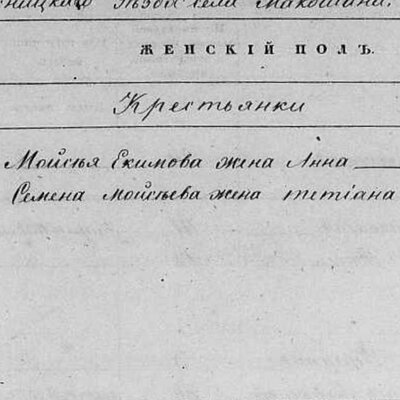 уѣзда села Макошина.
ЖЕНСКІЙ ПОЛЪ.
Крестьянки
Мойсѣя Екимова жена Анна
Семена мойсѣева жена тетіана